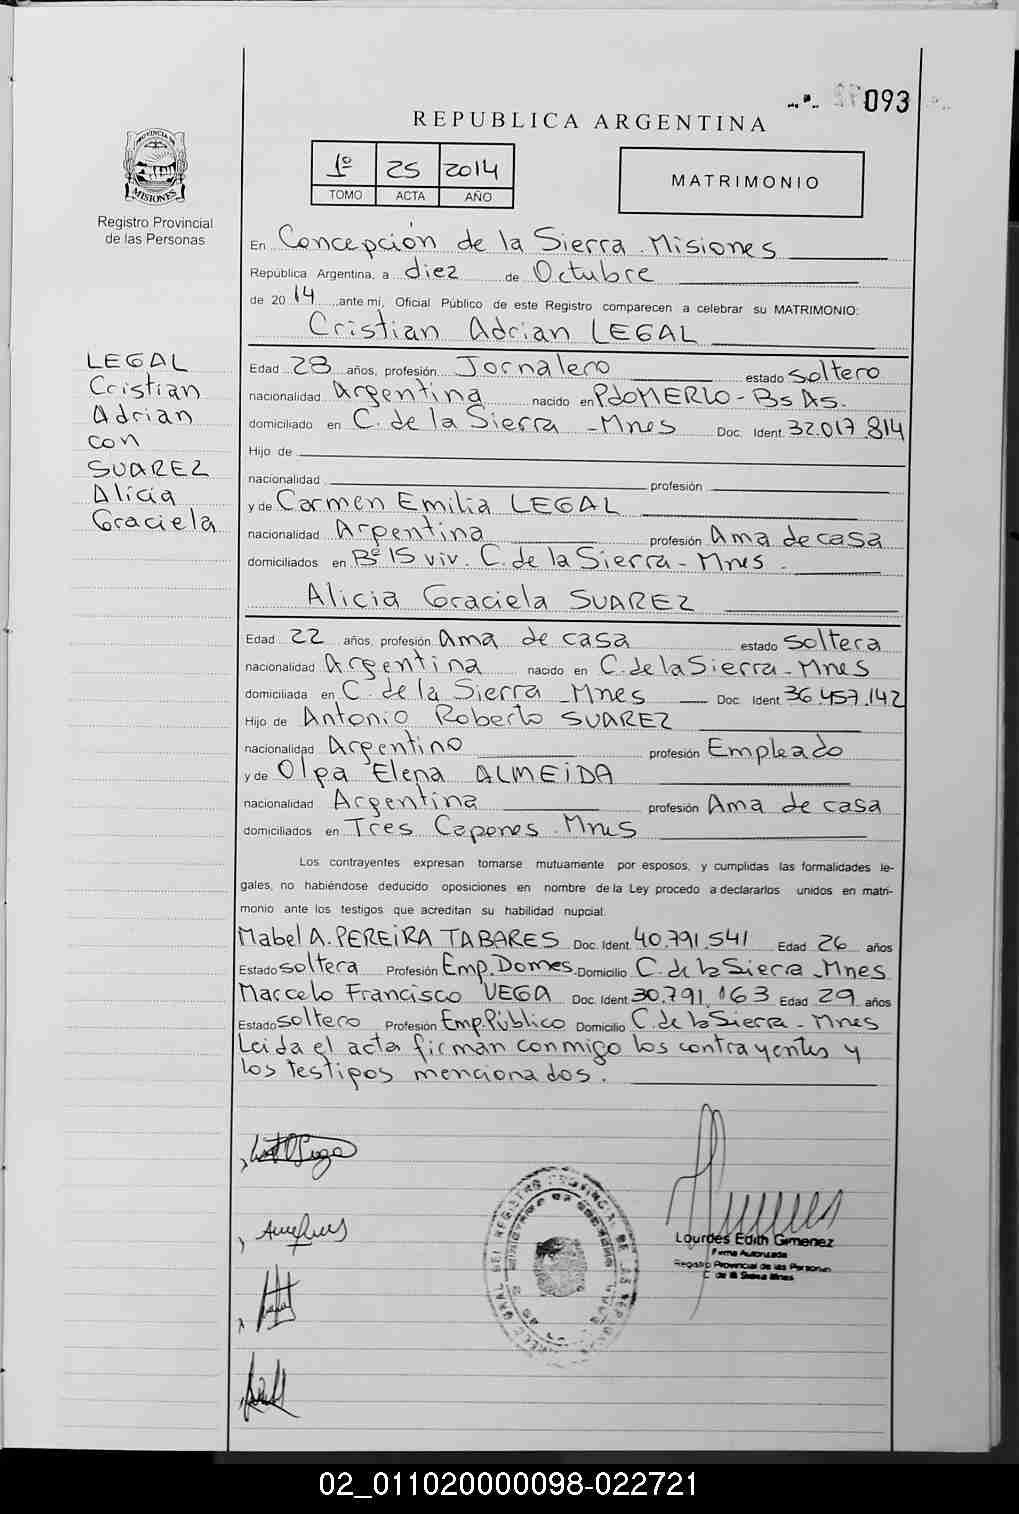 093
REPUBLICA ARGENTINA
PROVINCIA DE
MISIONES
Registro Provincial
de las Personas
1º 25 2014
TOMO ACTA AÑO
MATRIMONIO
En Concepción de la Sierra - Misiones
República Argentina, a diez de Octubre
de 2014, ante mi, Oficial Público de este Registro comparecen a celebrar su MATRIMONIO:
Cristian Adrian LEGAL
LEGAL
Cristian
Adrian
con
SUAREZ
Alicia
Graciela
Edad 28 años, profesión Jornalero estado soltero
nacionalidad Argentina nacido en PDOMERLO - Bs As.
domiciliado en C. de la Sierra - Mnes Doc. Ident. 32.017.814
Hijo de
nacionalidad profesión
y de Carmen Emilia LEGAL
nacionalidad Argentina profesión Ama de casa
domiciliados en Bº 15 viv. C. de la Sierra - Mnes.
Alicia Graciela SUAREZ
Edad 22 años, profesión Ama de casa estado soltera
nacionalidad Argentina nacido en C. de la Sierra - Mnes
domiciliada en C. de la Sierra - Mnes Doc. Ident. 36.457.142
Hijo de Antonio Roberto SUAREZ
nacionalidad Argentino profesión Empleado
y de Olga Elena ALMEIDA
nacionalidad Argentina profesión Ama de casa
domiciliados en Tres Capones - Mnes
Los contrayentes expresan tomarse mutuamente por esposos, y cumplidas las formalidades le-
gales, no habiéndose deducido oposiciones en nombre de la Ley procedo a declararlos unidos en matri-
monio ante los testigos que acreditan su habilidad nupcial.
Mabel A. PEREIRA TABARES Doc. Ident. 40.791.541 Edad 26 años
Estado soltera Profesión Emp. Domes. Domicilio C. de la Sierra - Mnes
Marcelo Francisco VEGA Doc. Ident. 30.791.163 Edad 29 años
Estado soltero Profesión Emp. Público Domicilio C. de la Sierra - Mnes
Leida el acta firman conmigo los contrayentes y
los testigos mencionados.
Lourdes Edith Gimenez
Firma Autorizada
Registro Provincial de las Personas
C. de la Sierra Mnes
02_011020000098-022721